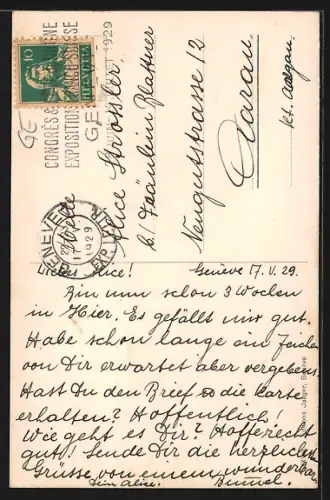 10
HELVETIA
CONGRÈS &
EXPOSITION
1929
GENÈVE
1929
EXP. LETTR.
Alice Strössler
b/ Fräulein Blattner
Neugutstrasse 12
Aarau
Kt. Aargau.
Genève 17. V. 29.
Liebes Alice!
Bin nun schon 3 Wochen
in Hier. Es gefällt mir gut.
Habe schon lange ein Zeichen
von Dir erwartet aber vergebens.
Hast Du den Brief die Karte
erhalten? Hoffentlich!
Wie geht es Dir? Hoffe recht
gut! Sende Dir die herzlichsten
Grüsse von einem
Bummel.
Dein Alice.
Jaeger, Genève